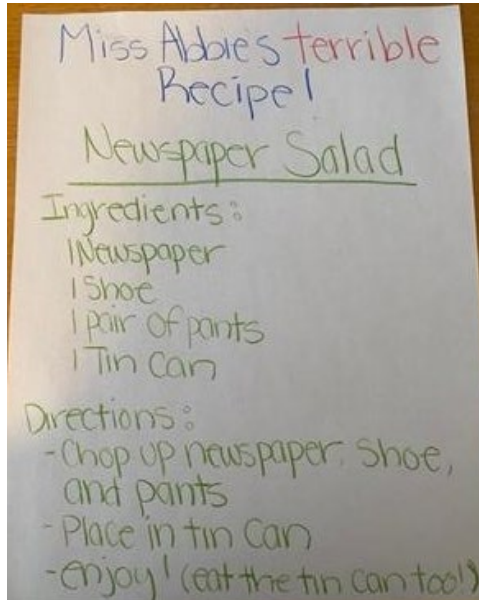 Miss Abbie's terrible
Recipe!
Newspaper Salad
Ingredients:
1 Newspaper
1 Shoe
1 pair of pants
1 Tin Can
Directions:
- Chop up newspaper, shoe,
and pants
- Place in tin can
- enjoy! (eat the tin can too!)